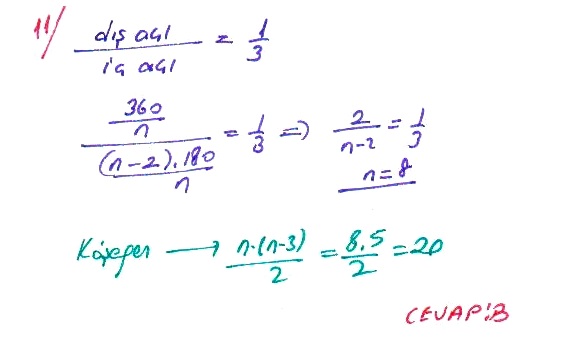 11/ dış açı / iç açı = 1/3
360/n / (n-2).180/n = 1/3 => 2/n-2 = 1/3
n=8
Köşegen → n.(n-3)/2 = 8.5/2 = 20
CEVAP:B